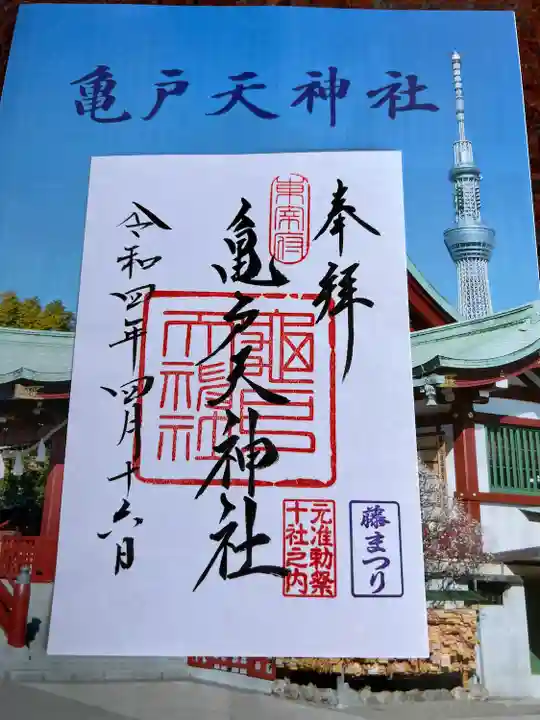 亀戸天神社
奉拝
東宰府
亀戸天神社
亀戸天神社
元准勅祭
十社之内
藤まつり
令和四年四月十六日